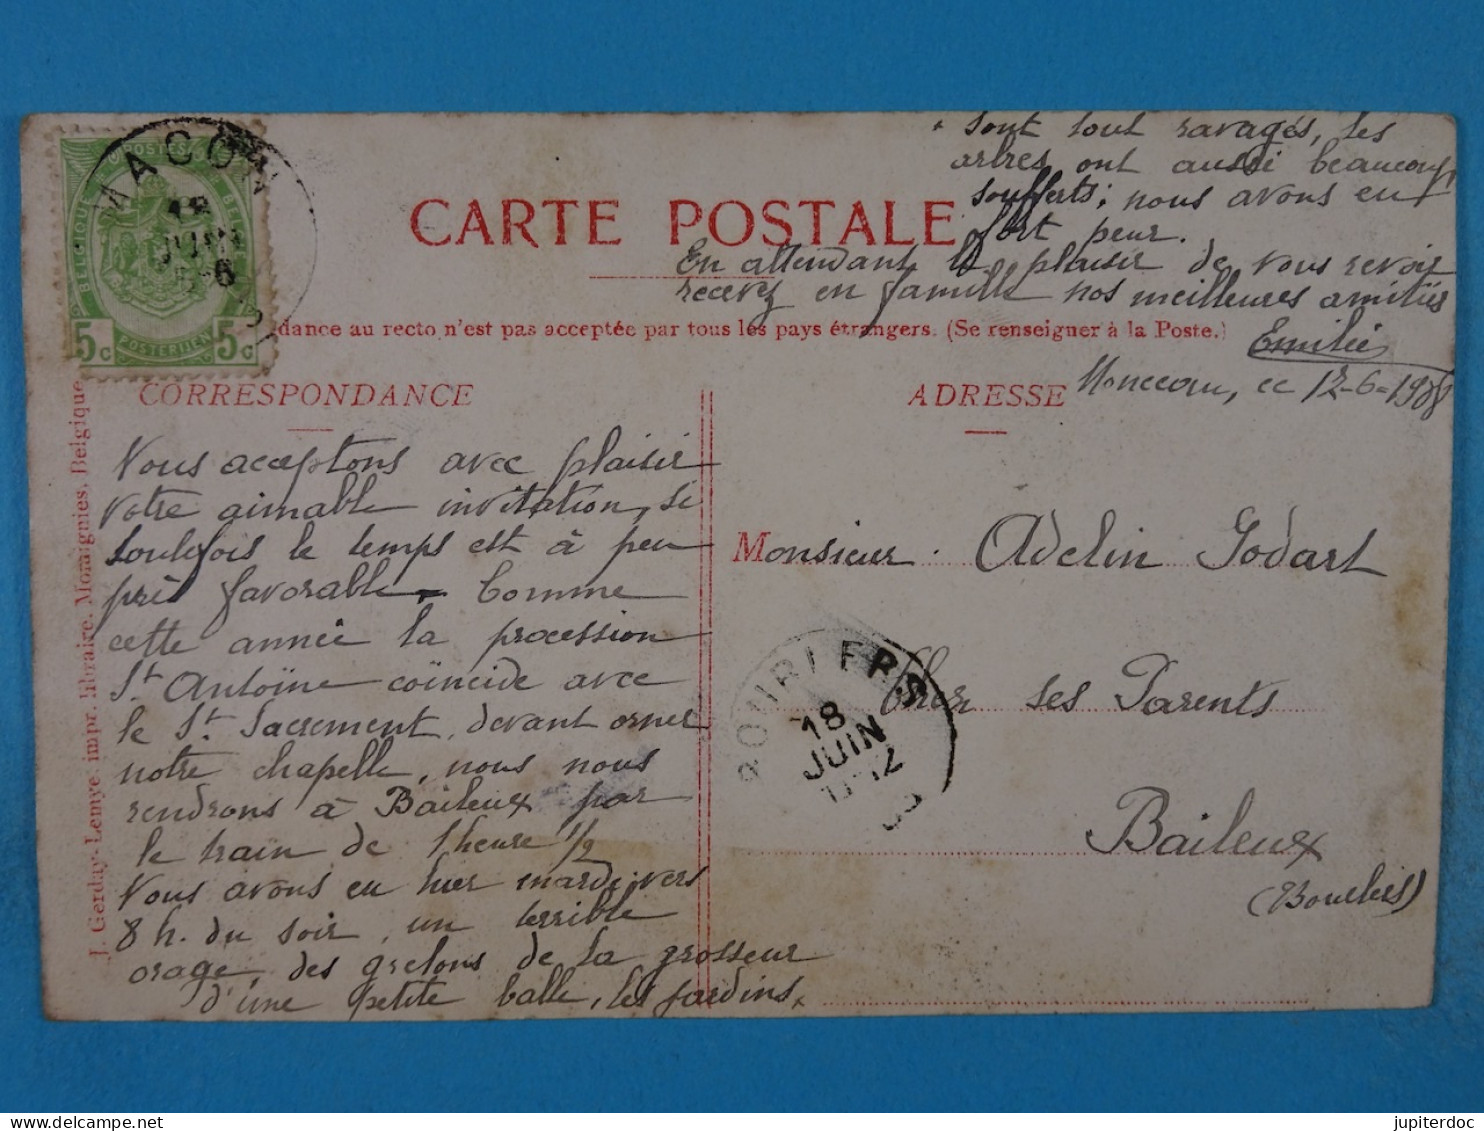 MACON
JUIN
5-6
POSTES
BELGIQUE
BELGIE
5c POSTERIJEN 5c
CARTE POSTALE
dance au recto n'est pas acceptée par tous les pays étrangers. (Se renseigner à la Poste.)
J. Gerday-Lemye, impr. libraire, Momignies, Belgique
CORRESPONDANCE
Vous acceptons avec plaisir
votre aimable invitation, si
toutefois le temps est à peu
près favorable. Comme
cette année la procession
St. Antoïne coïncide avec
le St. Sacrement, devant orner
notre chapelle, nous nous
rendrons à Baileux par
le train de 1 heure 1/2
Nous avons eu hier mardi, vers
8 h. du soir, un terrible
orage, des grelons de la grosseur
d'une petite balle, les jardins,
sont tout ravagés, les
arbres ont aussi beaucoup
soufferts; nous avons eu
fort peur.
En attendant le plaisir de vous revoir
recevez en famille nos meilleures amitiés
Emilie
ADRESSE
Monceau, ce 12-6-1908
Monsieur Adelin Godart
Chez ses Parents
Baileux
(Bourlers)
BOURLERS
18
JUIN
jupiterdoc